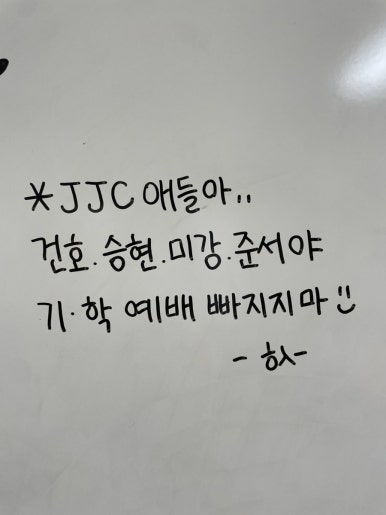 *JJC 애들아..
건호.승현.미강.준서야
기·학 예배 빠지지마 :)
- 하 -